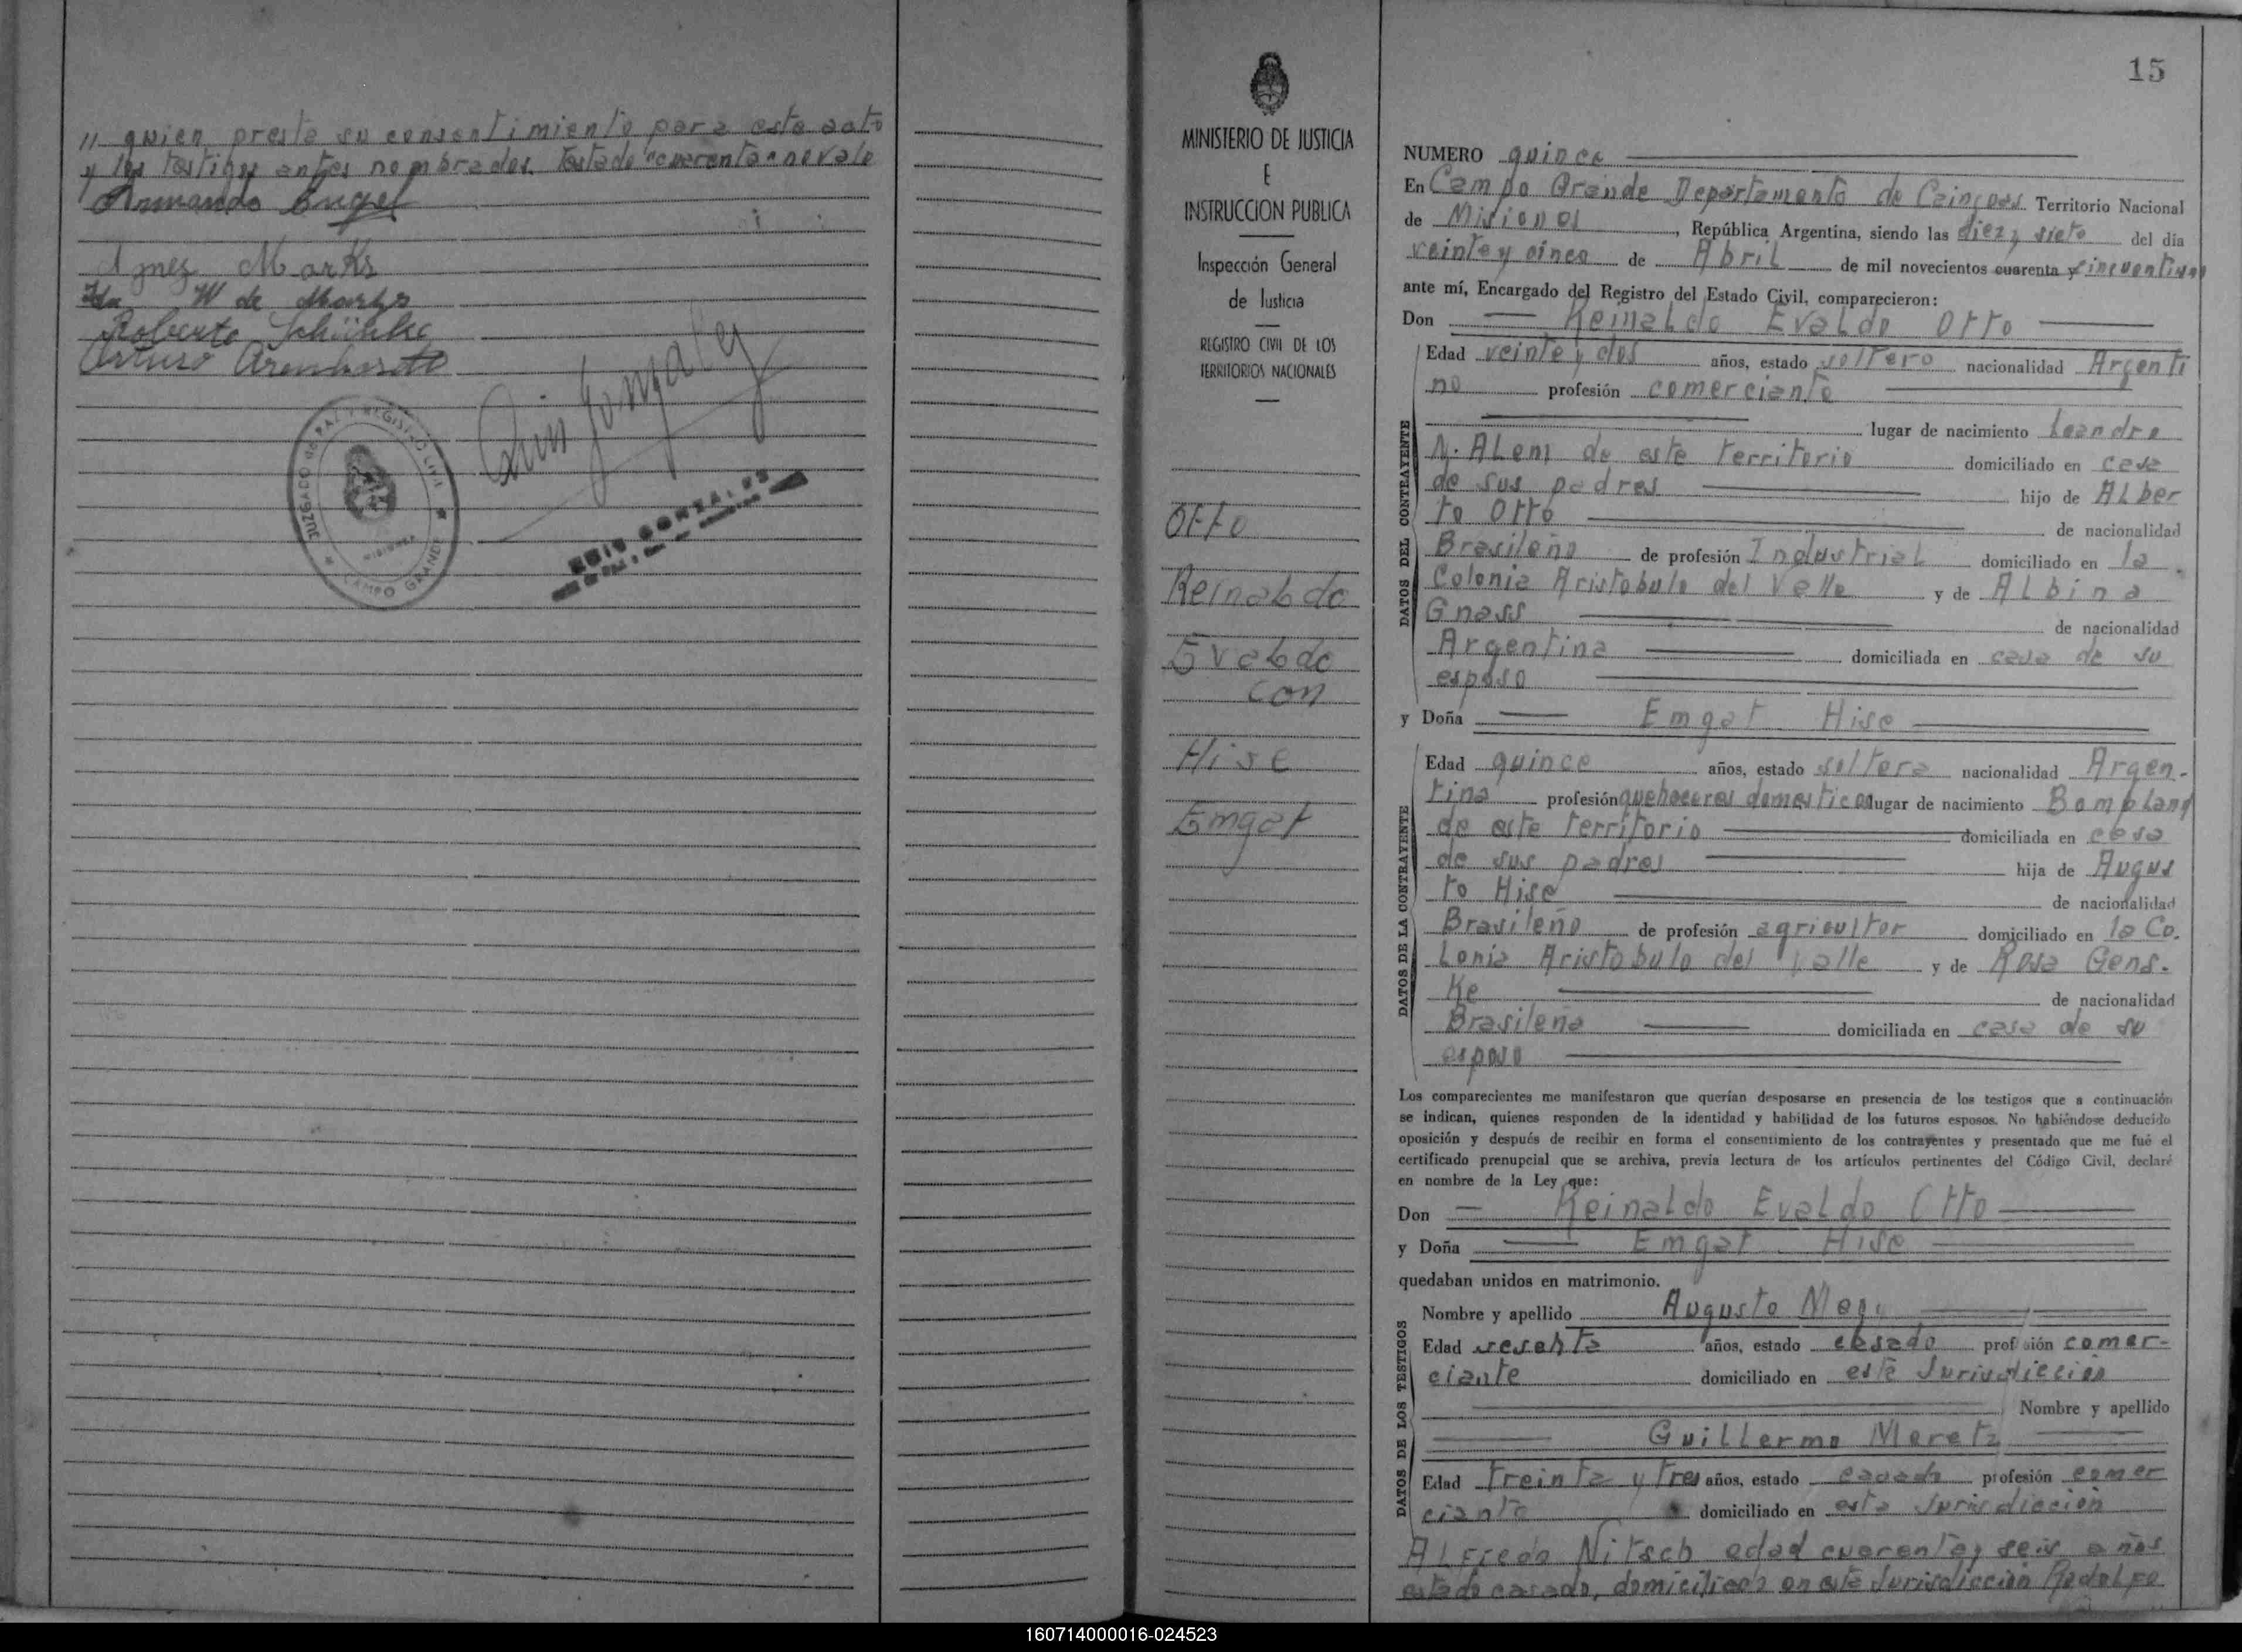 " quien presta su consentimiento para este acto
y los testigos antes nombrados. Testado "cuarenta" no vale
Armando Engel
Ynez Marks
W de Marks
Roberto Schünke
Arturo
JUZGADO de PAZ Y REGISTRO CIVIL
MISIONES
CAMPO GRANDE
GONZALES
MINISTERIO DE JUSTICIA
E
INSTRUCCION PUBLICA
Inspección General
de Justicia
REGISTRO CIVIL DE LOS
TERRITORIOS NACIONALES
Otto
Reinaldo
Evaldo
con
Hise
Emgat
15
NUMERO quince
En Campo Grande Departamento de Cainguas Territorio Nacional
de Misiones, República Argentina, siendo las diez y siete del día
veinte y cinco de Abril de mil novecientos cuarenta y cincuentiuno
ante mí, Encargado del Registro del Estado Civil, comparecieron:
Don Reinaldo Evaldo Otto
DATOS DEL CONTRAYENTE
Edad veinte y dos años, estado soltero nacionalidad Argenti
no profesión comerciante
lugar de nacimiento Leandro
N. Alem de este territorio domiciliado en casa
de sus padres hijo de Alber
to Otto de nacionalidad
Brasileño de profesión Industrial domiciliado en la
Colonia Aristobulo del Valle y de Albina
Gnass de nacionalidad
Argentina domiciliada en casa de su
esposo
y Doña Emgat Hise
DATOS DE LA CONTRAYENTE
Edad quince años, estado soltera nacionalidad Argen-
tina profesión quehaceres domesticos lugar de nacimiento Bompland
de este territorio domiciliada en casa
de sus padres hija de Augus
to Hise de nacionalidad
Brasileño de profesión agricultor domiciliado en la Co.
lonia Aristobulo del Valle y de Rosa Gens.
ke de nacionalidad
Brasileña domiciliada en casa de su
esposo
Los comparecientes me manifestaron que querían desposarse en presencia de los testigos que a continuación
se indican, quienes responden de la identidad y habilidad de los futuros esposos. No habiéndose deducido
oposición y después de recibir en forma el consentimiento de los contrayentes y presentado que me fué el
certificado prenupcial que se archiva, previa lectura de los artículos pertinentes del Código Civil, declaré
en nombre de la Ley que:
Don Reinaldo Evaldo Otto
y Doña Emgat Hise
quedaban unidos en matrimonio.
DATOS DE LOS TESTIGOS
Nombre y apellido Augusto
Edad sesenta años, estado casado profesión comer-
ciante domiciliado en esta Jurisdicción
Nombre y apellido
Guillermo Meretz
Edad treinta y tres años, estado casado profesión comer
ciante domiciliado en esta Jurisdicción
Alfredo Nitsch edad cuarenta y seis años
estado casado, domiciliado en esta Jurisdicción Rodolfo
160714000016-024523